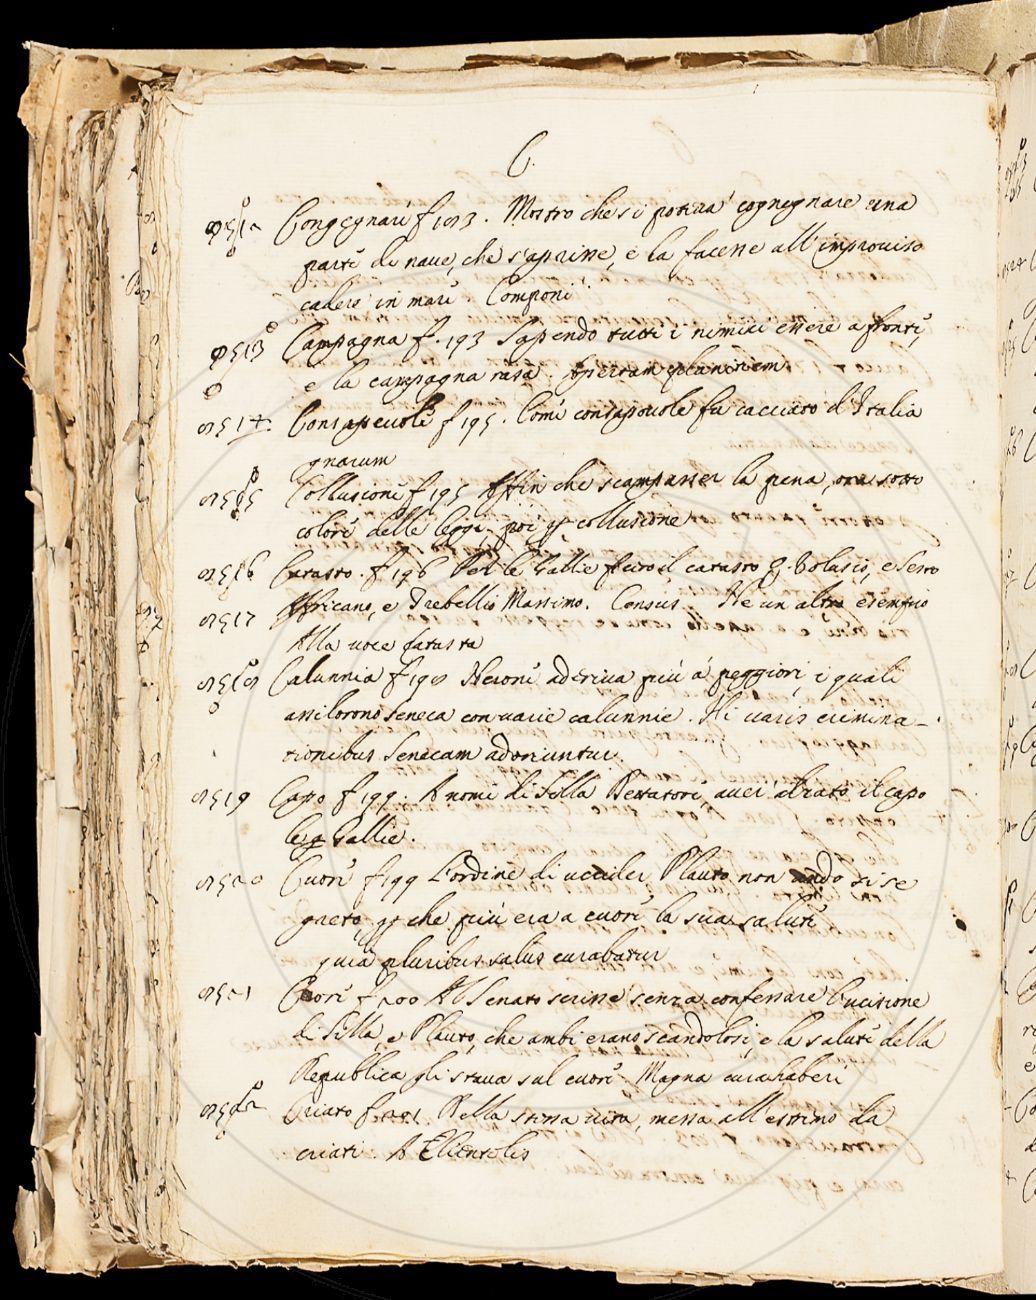 C.
Congegnare f 193. Mostro che si poteva cogegnare una
parte di nave, che s'aprisse, e la facesse all'improviso
cadere in mare Componi
Campagna f. 193 Sapendo tutti i nimici essere a fronte,
e la campagna rasa. Apertam planitiem
Consapevole f 195. Come consapovole fu cacciato d'Italia
gnarum
Collusione f 195 Affin che scampasser la pena, ora sotto
colore delle leggi, poi per collusione
Catasto. f 196 Per le Gallie fecero il catasto Q. Volusio, e Sesto
Africano, e Trebellio Massimo. Census. Ne un altro esempio
Alla voce
Calunnia f 198 Nerone aderiva più a' peggiori, i quali
assilorono Seneca con varie calunnie. Hi variis crimina-
tionibus Senecam adoriuntur.
2519 Capo f 199. A nome di Silla Pettatore avei alzato il capo
le Gallie.
2520 Cuore f 199 L'ordine di uccider Plauto non andò sì se
greto, per che più era a cuore la sua salute
quia pluribus salus curabatur
2521 Cuore f 200 Al Senato scrisse senza confessare l'uccisione
di Silla, e Plauto, che ambi erano scandolosi, e la salute della
Republica gli stava sul cuore Magna cura haberi
Criato f 201 Nella stessa vita, messa all'estimo da
criati. A